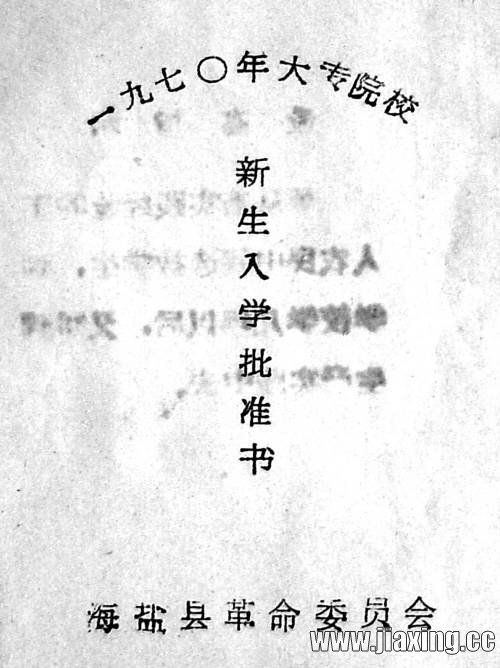 一九七〇年大专院校
新生入学批准书
海盐县革命委员会
www.jiaxing.cc